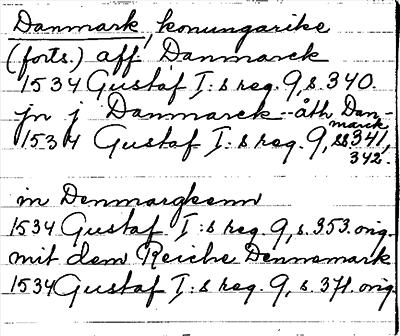 Danmark, konungarike
(forts.) aff Danmarck
1534 Gustaf I:s reg. 9, s. 340.
jn j Danmarck - åth Danmarck
1534 Gustaf I:s reg. 9, ss 341, 342.
in Denmargkenn
1534 Gustaf I:s reg. 9, s. 353. orig.
mit dem Reiche Dennemark
1534 Gustaf I:s reg. 9, s. 371. orig.